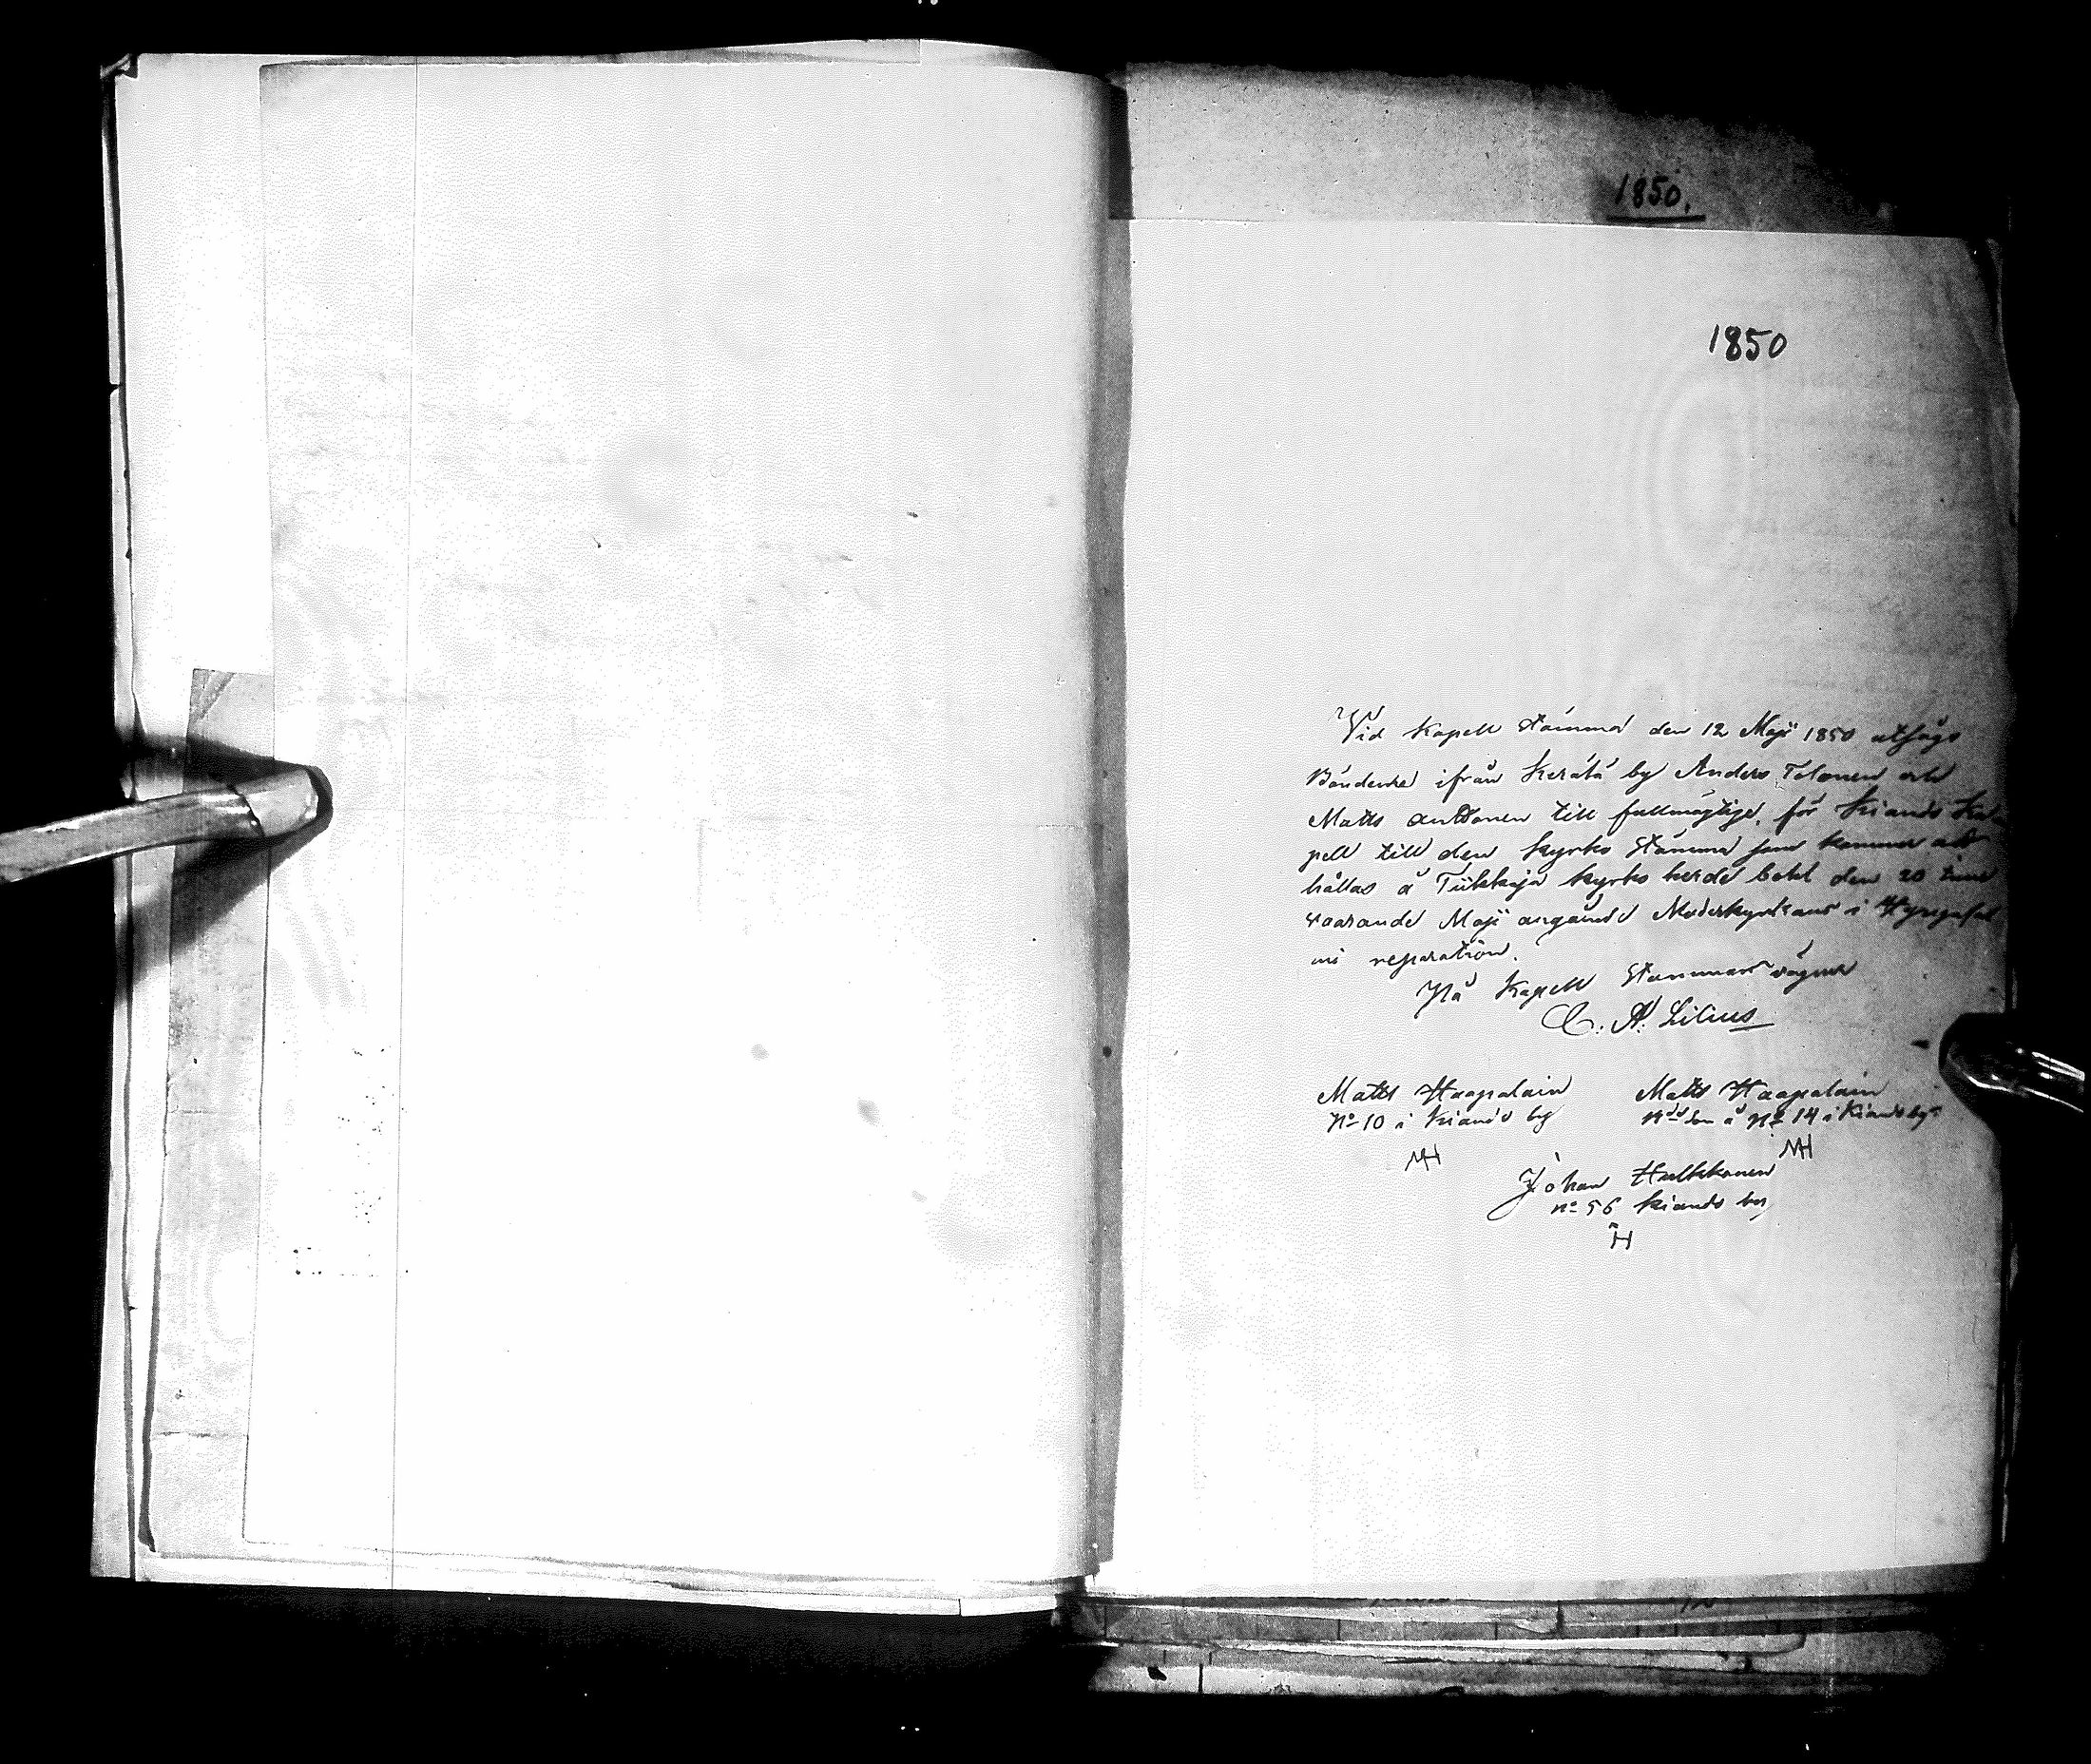 1850.
1850
Vid Kapell Stämma den 12 Maji 1850 utsågs
Bönderne ifrån Kerälä by Anders Tolonen och
Matts Anttonen till fullmägtige, för Kianto Ka
pell till den kyrko Stämma som kommer att
hållas å Tiikkaja kyrko herde den 20 inne
varande Maji angående Moderkyrkans i Hyrynsal
mi reparation.
På Kapell Stämmans vägnar
C. A. Lilius
Matts Haapalain Matts Haapalain
No 10 i Kianto by å No 14 i Kianto by
MH MH
Johan Hulkkonen
No 56 Kianto by
H